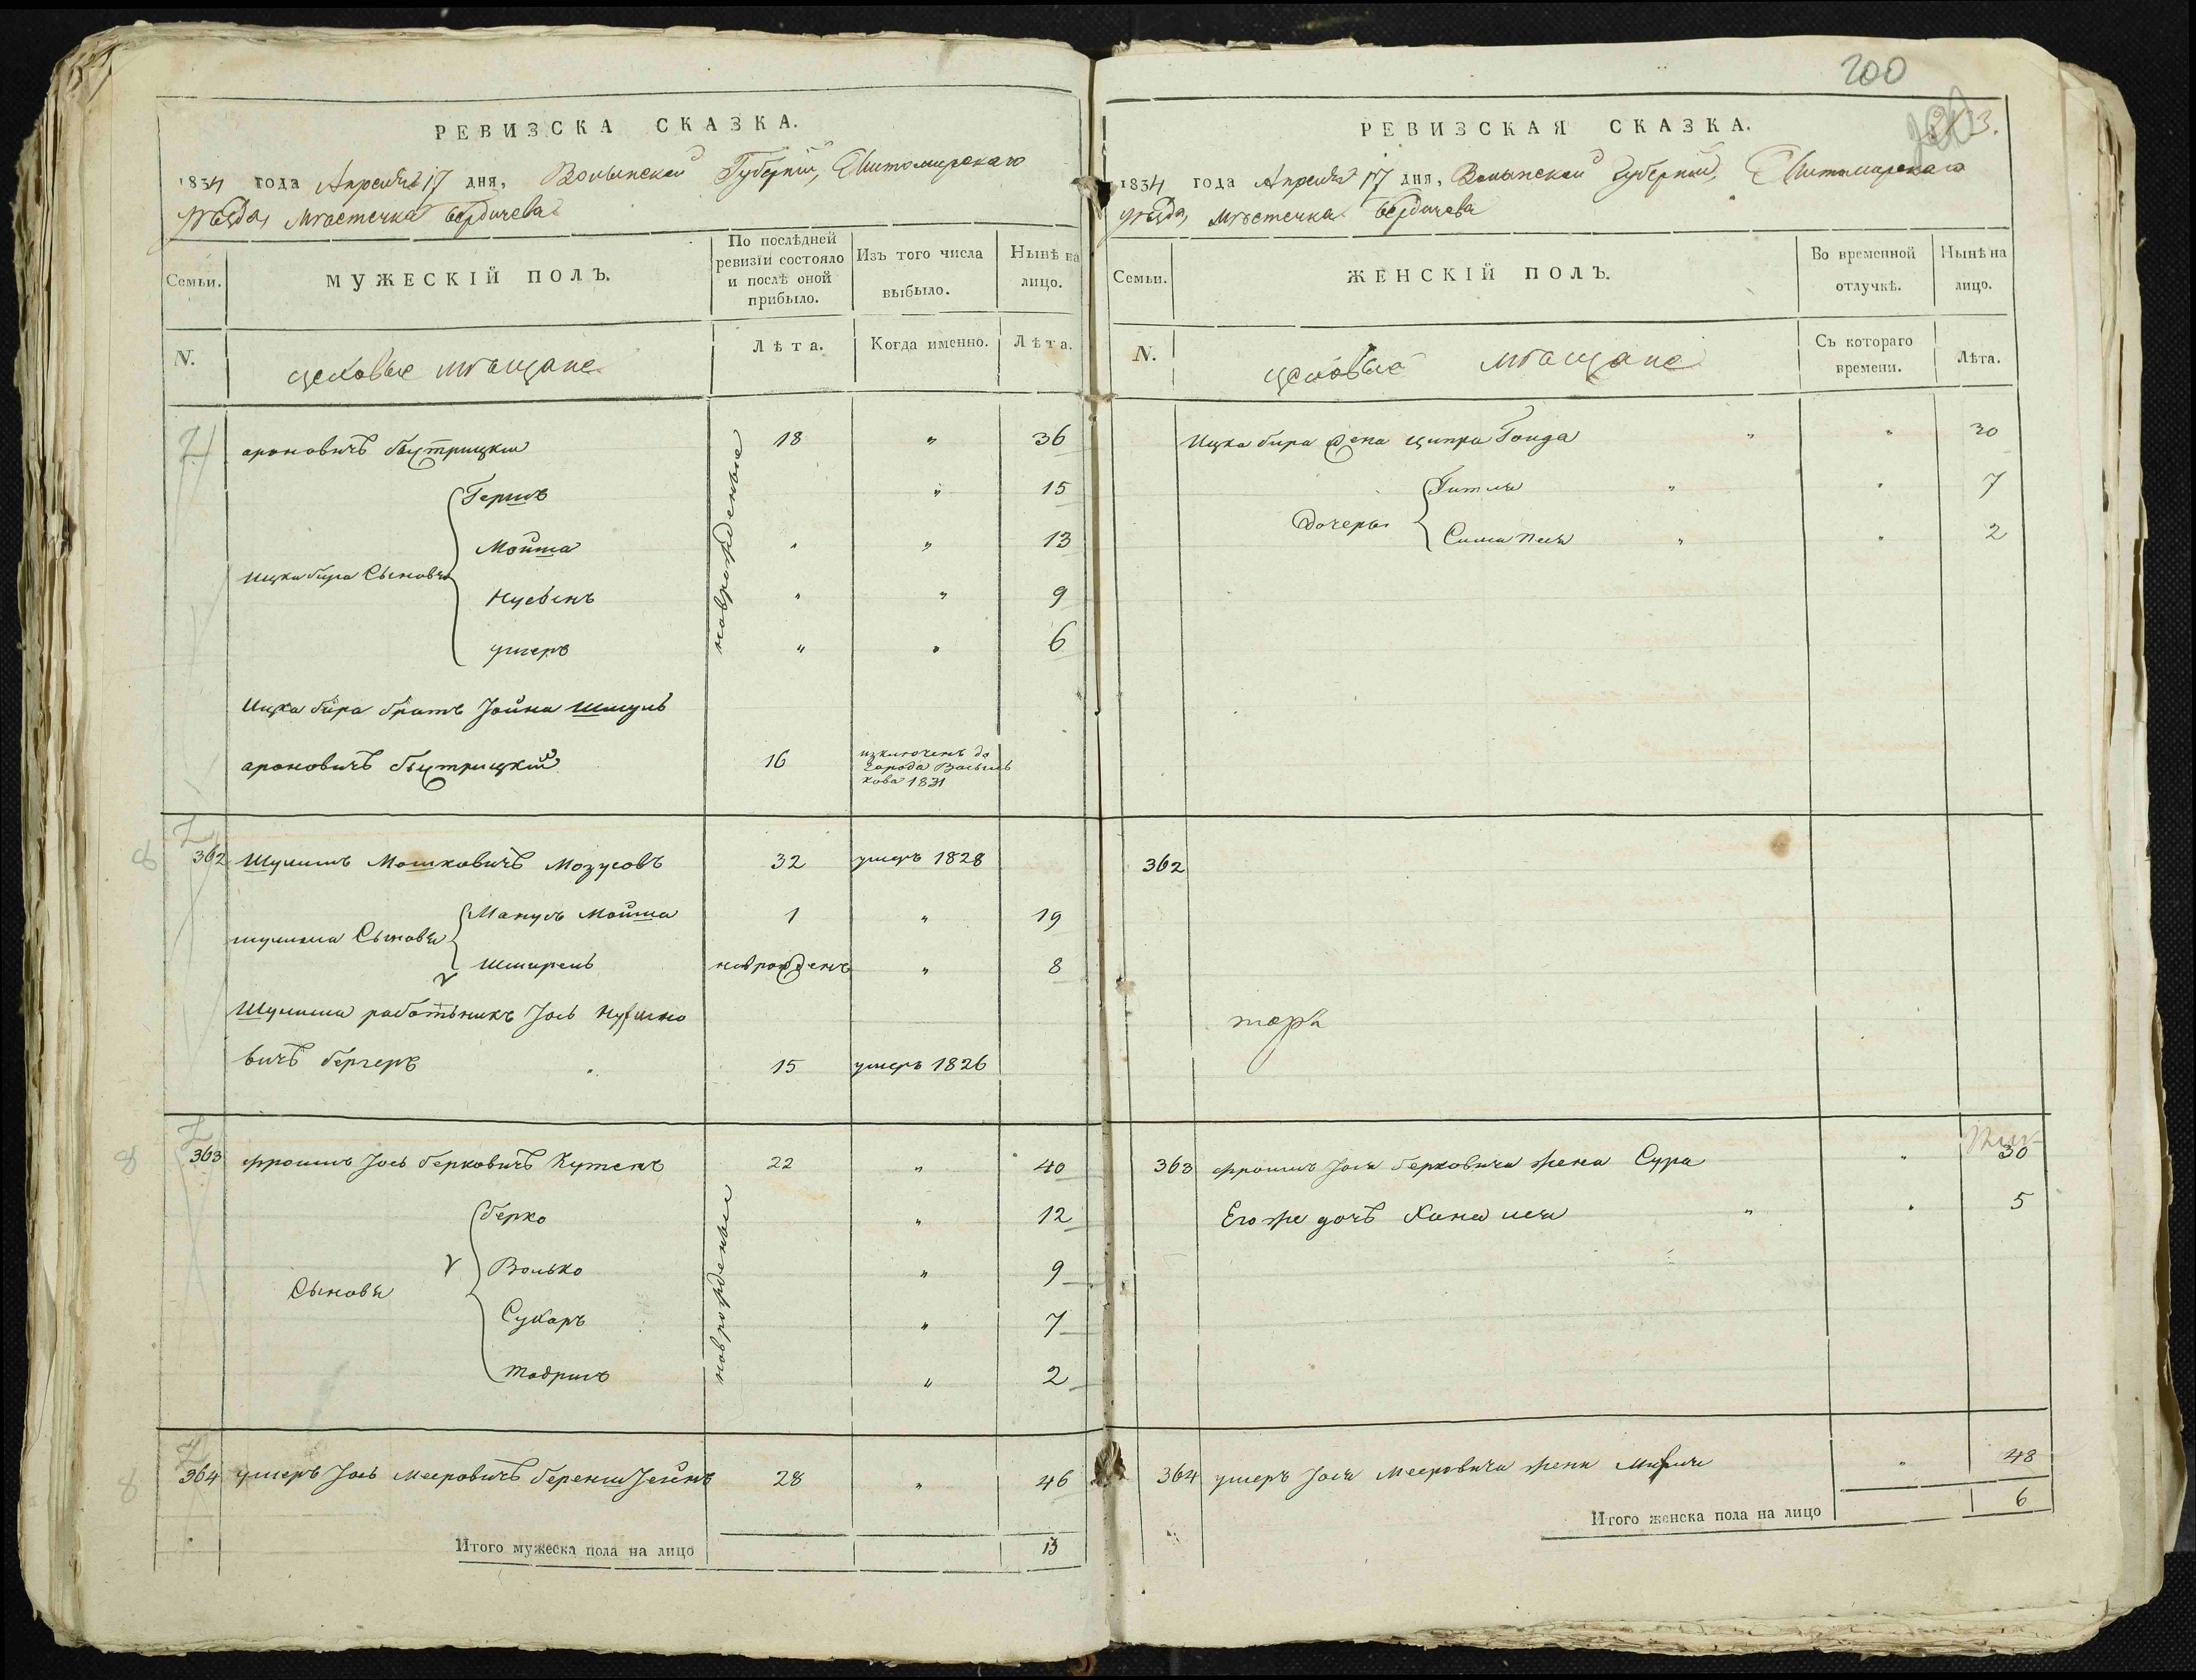 200
РЕВИЗСКА СКАЗКА.
1834 года Апреля 17 дня, Волынской Губерніи, Житомирскаго
уѣзда, мѣстечка бердичева
Семьи.
МУЖЕСКІЙ ПОЛЪ.
По послѣдней ревизіи состояло и послѣ оной прибыло.
Изъ того числа выбыло.
Нынѣ на лицо.
N.
цеховые мѣщане
Лѣта.
Когда именно.
Лѣта.
ароновичъ быстрицкии 18 " 36
новорожденные
Гершъ " 15
Мойша " " 13
Ицка бера Сыновья
Нусенъ " " 9
ушеръ " " 6
Ицка бера братъ Іойна Шмуль
ароновичъ быстрицкій 16 изключенъ до города Василькова 1831
362 Шулимъ Мошковичъ Мозусовъ 32 умеръ 1828
шулима Сыновья
Манусъ Мойша 1 " 19
Шмерель новрожденъ " 8
Шулима работникъ Іось
вичъ бергеръ 15 умеръ 1826
363 фроимъ Іось берковичъ Кутенъ 22 " 40
новрожденные
берко " 12
Волько " 9
Сыновья
Сухаръ " 7
Тодрисъ " 2
364 ушеръ Іось Мееровичъ 28 " 46
Итого мужеска пола на лицо 13
РЕВИЗСКАЯ СКАЗКА.
1834 года Апреля 17 дня, Волынской Губерніи, Житомирскаго
уѣзда, мѣстечка бердичева
Семьи.
ЖЕНСКІЙ ПОЛЪ.
Во временной отлучкѣ.
Нынѣ на лицо.
N.
цеховые мѣщане
Съ котораго времени.
Лѣта.
Ицка бера жена ципра Гоида " " 30
Дочеры
Гитля " " 7
Сима песя " " 2
362
363 фроимъ Іося берковича жена Сура " 30
Его же дочь Хана лея " " 5
364 ушеръ Іося Мееровича жена " 48
Итого женска пола на лицо 6